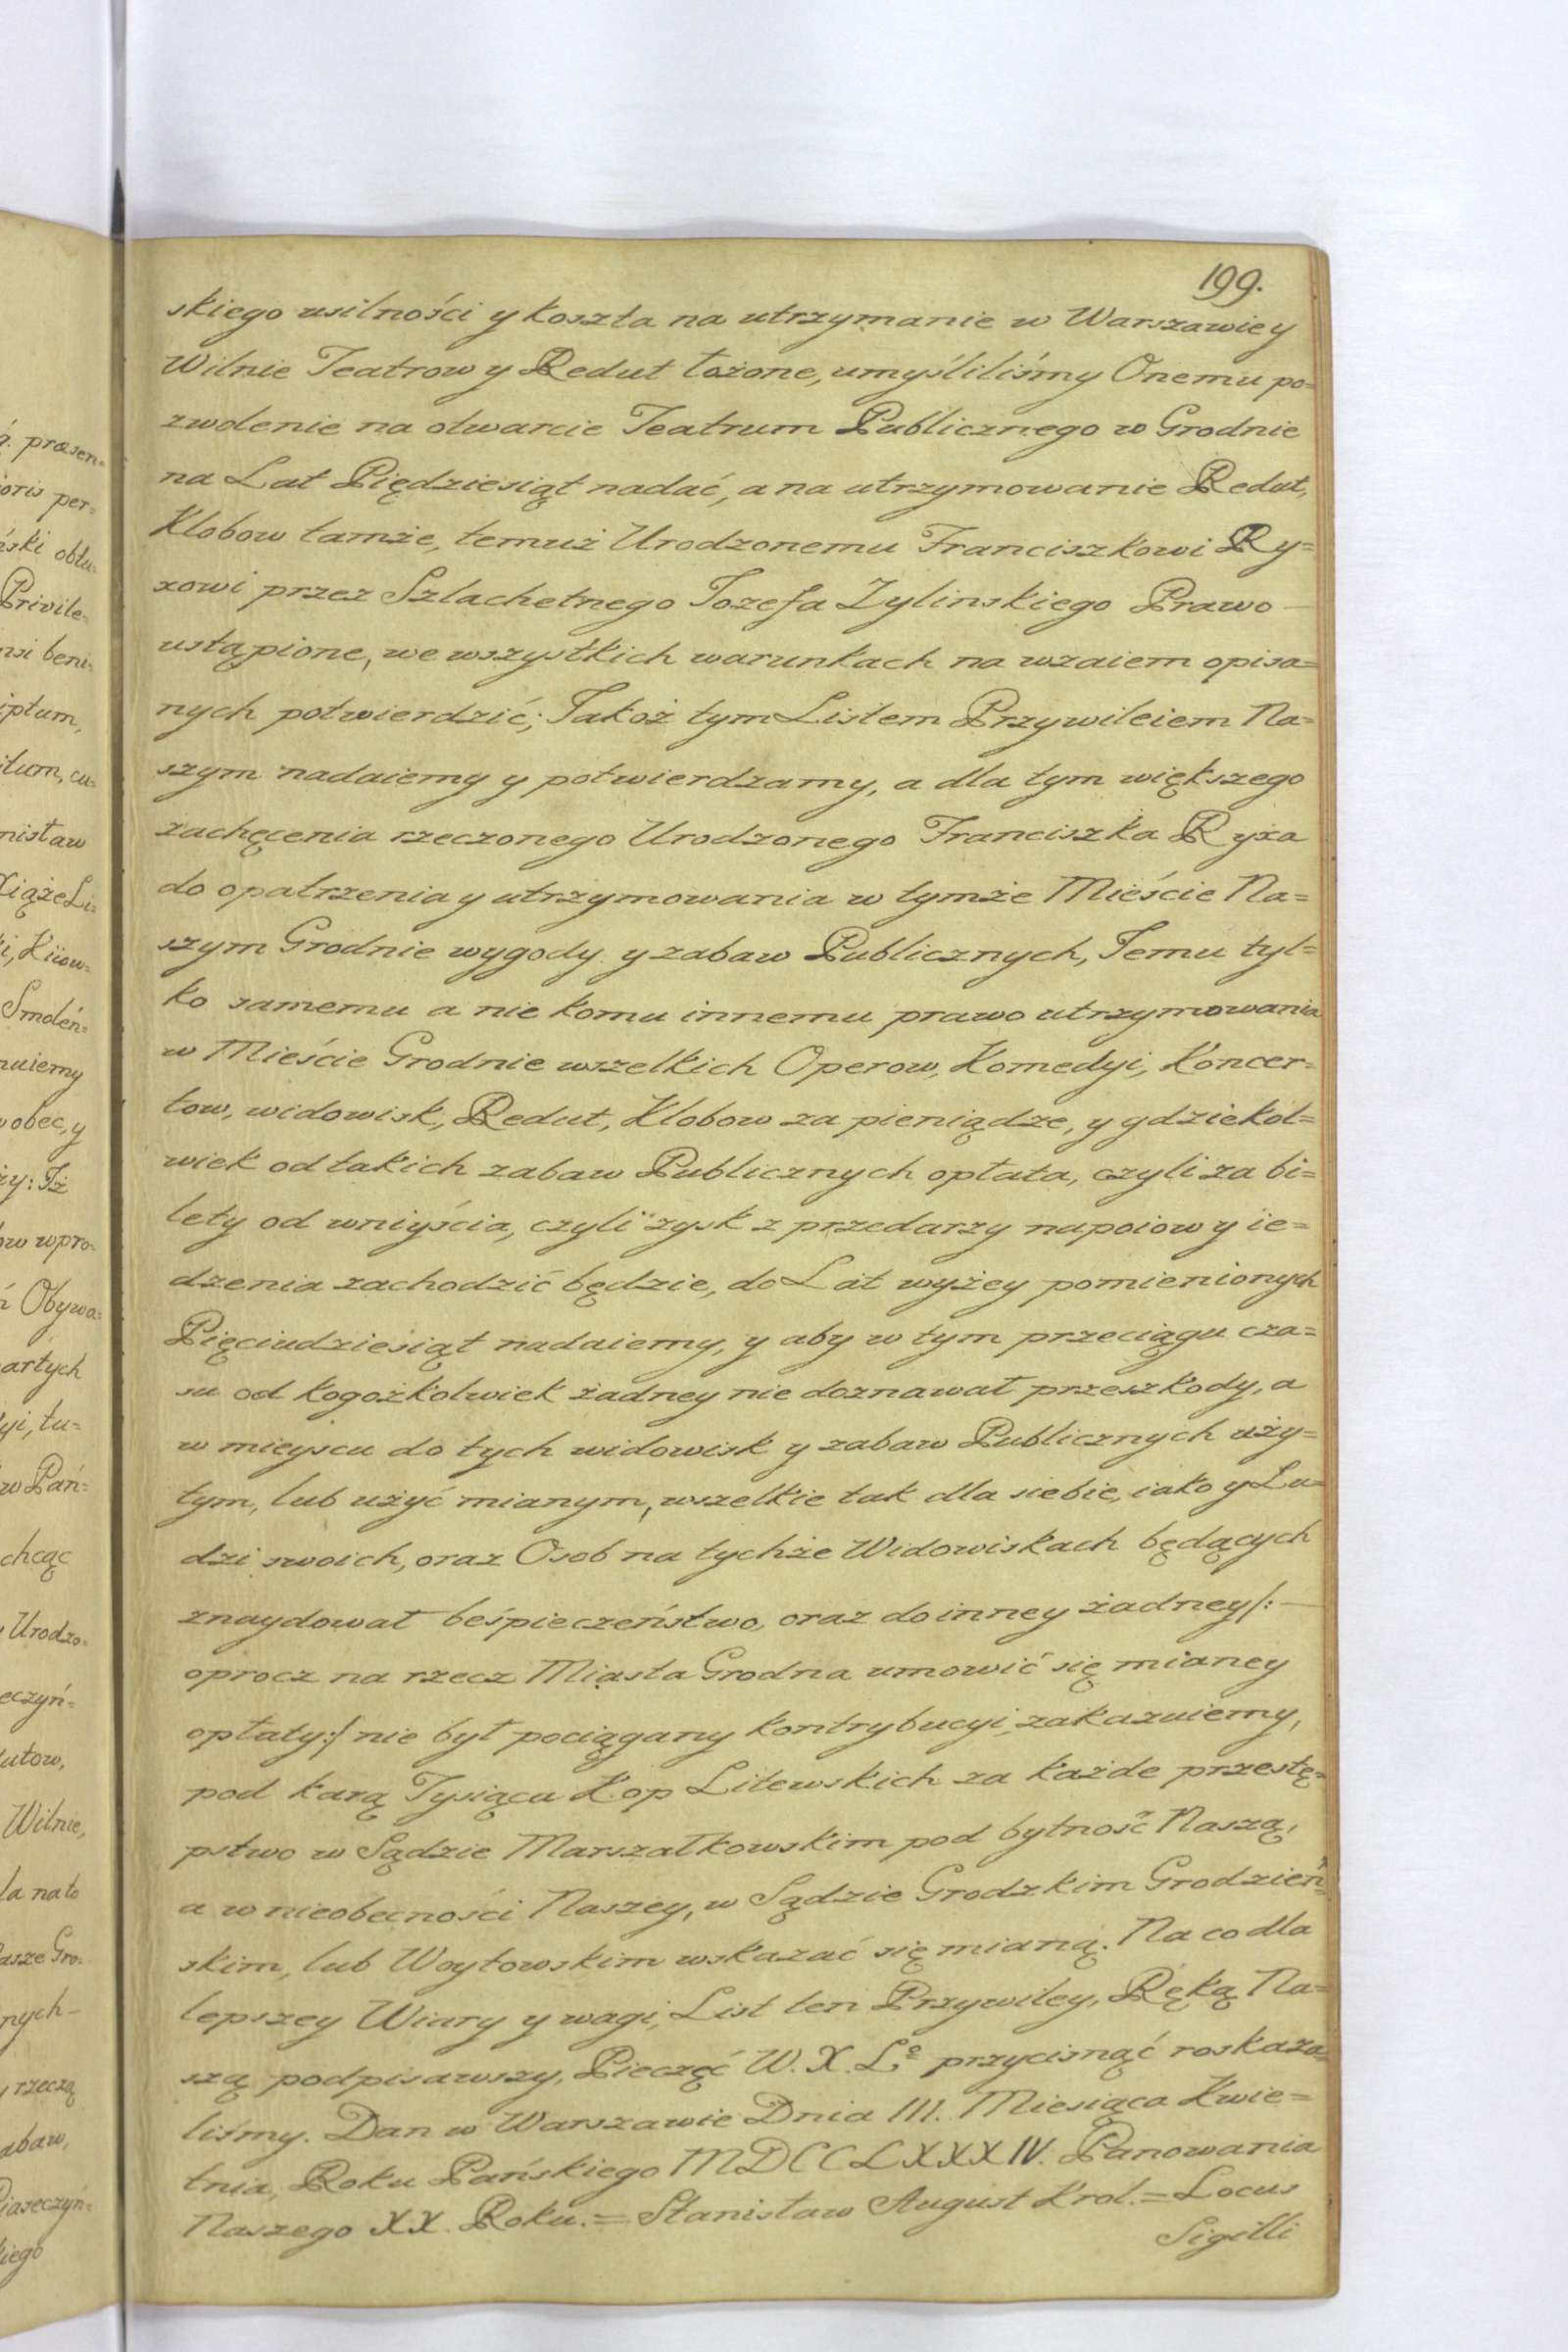 199.
skiego usilności y koszta na utrzymanie w Warszawie y
Wilnie Teatrow y Redut łożone, umyśliliśmy Onemu po=
zwolenie na otwarcie Teatrum Publicznego w Grodnie
na Lat Piędziesiąt nadać, a na utrzymowanie Redut,
Klobow tamże, temuż Urodzonemu Franciszkowi Ry=
xowi przez Szlachetnego Jozefa Zylinskiego Prawo —
ustąpione, we wszystkich warunkach na wzaiem opisa=
nych potwierdzić; Jakoż tym Listem Przywileiem Na=
szym nadaiemy y potwierdzamy, a dla tym większego
zachęcenia rzeczonego Urodzonego Franciszka Ryxa
do opatrzenia y utrzymowania w tymże Mieście Na=
szym Grodnie wygody y zabaw Publicznych, Temu tyl=
ko samemu a nie komu innemu prawo utrzymowania
w Mieście Grodnie wszelkich Operow, Komedyi, Koncer=
tow, widowisk, Redut, Klobow za pieniądze, y gdziekol=
wiek od takich zabaw Publicznych opłata, czyli za bi=
lety od wniyścia, czyli zysk z przedarzy napoiow y ie=
dzenia zachodzić będzie, do Lat wyżey pomienionych
Pięciudziesiąt nadaiemy, y aby w tym przeciągu cza=
su od kogożkolwiek żadney nie doznawał przeszkody, a
w mieyscu do tych widowisk y zabaw Publicznych uży=
tym, lub użyć mianym, wszelkie tak dla siebie, iako y Lu=
dzi swoich, oraz Osob na tychże Widowiskach będących
znaydował beśpieczeństwo, oraz do inney żadney /: —
oprocz na rzecz Miasta Grodna umowić się mianey
opłaty :/ nie był pociągany kontrybucyi, zakazuiemy,
pod karą Tysiąca Kop Litewskich za każde przestę=
pstwo w Sądzie Marszałkowskim pod bytność Naszą,
a w nieobecności Naszey, w Sądzie Grodzkim Grodzień=
skim, lub Woytowskim wskazać się mianą. Na co dla
lepszey Wiary y wagi, List ten Przywiley, Ręką Na=
szą podpisawszy, Pieczęć W. X. Lº przycisnąć roskaza=
liśmy. Dan w Warszawie Dnia III. Miesiąca Kwie=
tnia, Roku Pańskiego MDCCLXXXIV. Panowania
Naszego XX. Roku. = Stanisław August Krol. = Locus
Sigilli
q. præsen=
ioris per=
ński obtu=
Privile=
nsi beni=
iptum,
itum, cu=
nisław
Xiąże Li=
i, Kiiow=
Smoleń=
nuiemy
obec, y
zy: Iż
ow wpro=
Obywa=
artych
yi, tu=
w Pań=
chcąc
Urodzo=
eczyń=
utow,
Wilnie,
la na to
asze Gro=
nych —
rzeczą
abaw,
Piaseczyń=
kiego